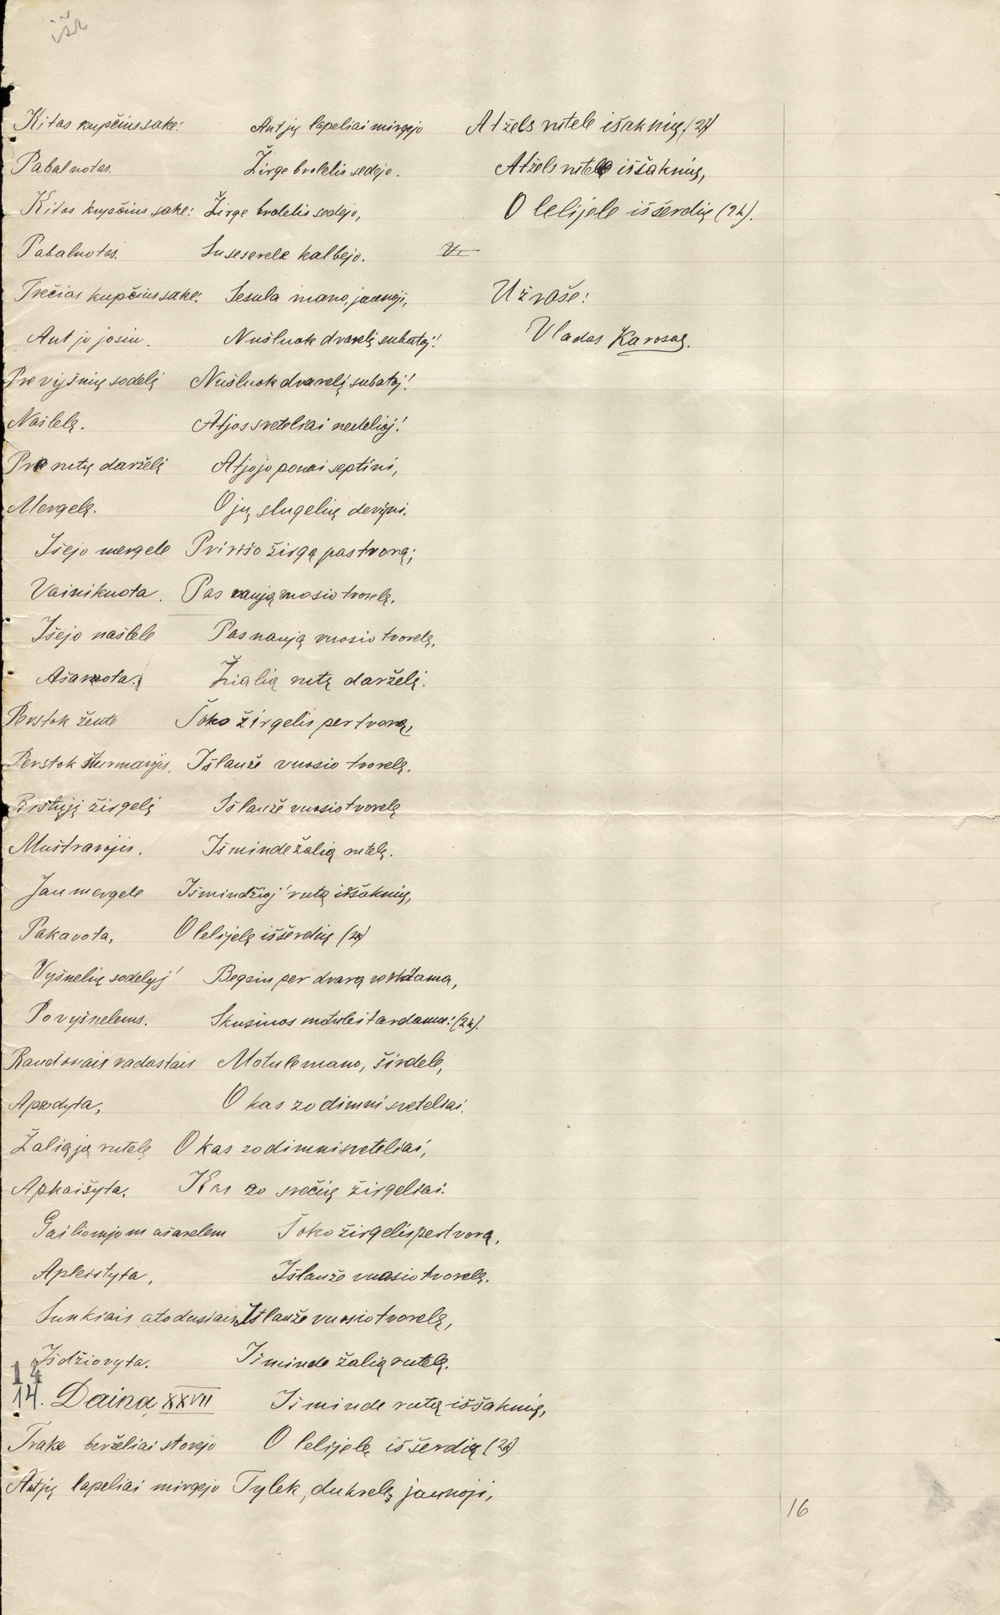 Kitas kupčius sake:
Pabalnotas.
Kitas kupčius sake:
Pabalnotas.
Trečias kupčius sake:
Ant jo josiu.
Pro vyšnių sodelį
Našlelę.
Pro rutų darželį
Mergelę.
Išejo mergele
Vainikuota.
Išejo našlele
Ašarota.
Perstok žente
Perstok šturmavyis,
Bistyjį žirgelį
Muštravojis.
Jau mergele
Pakavota,
Vyšnelių sodelyj'
Po vyšnelems.
Raudonais radastais
Aprodyta,
Žaliąja rutelę
Apkaišyta.
Gailiomjom ašarelem
Apleistyta,
Sunkiais atodusiais
Išdžiovyta.
14
14. Daina XXVII
Trake berželiai stovejo
Antjų lapeliai mirgejo
Ant jų lapeliai mirgejo
Žirge brolelis sedejo.
Žirge brolelis sedejo,
Su seserele kalbejo.
Sesula mano, jaunoji,
Nušluok dvarelį subatoj!
Nušluok dvarelį subatoj!
Atjos sveteliai nedelioj!
Atjojo ponai septini,
O jų slugelių devyni.
Pririšo žirgą pas tvorą;
Pas naują uosio tvorelę,
Pas naują vuosio tvorelę,
Žialią rutų darželį.
Šoko žirgelis per tvorą,
Išlaužė vuosio tvorelę.
Išlaužė vuosio tvorelę
Išminde žalią rutelę.
Išmindžioj' rutą iššaknių,
O lelijelę iššerdių (2k)
Begsiu per dvarą verkdama,
Skusiuos motulei tardama: (2k).
Motule mano, širdele,
O kas zo dimni sveteliai.
O kas zo dimni sveteliai,
Kas zo svečių žirgeliai.
Šoko žirgelis per tvorą,
Išlaužė vuosio tvorelę.
Išlaužė vuosio tvorelę,
Išminde žalią rutelę.
Išminde rutą iššaknių,
O lelijelę iššerdių (2k)
Tylek, dukrelę jaunoji,
Atžels rutele iš šaknių, (2k)
Atžels rutele iš šaknių,
O lelijele iš šerdių (2k).
V.
Užrašė:
Vladas Karosas.
16